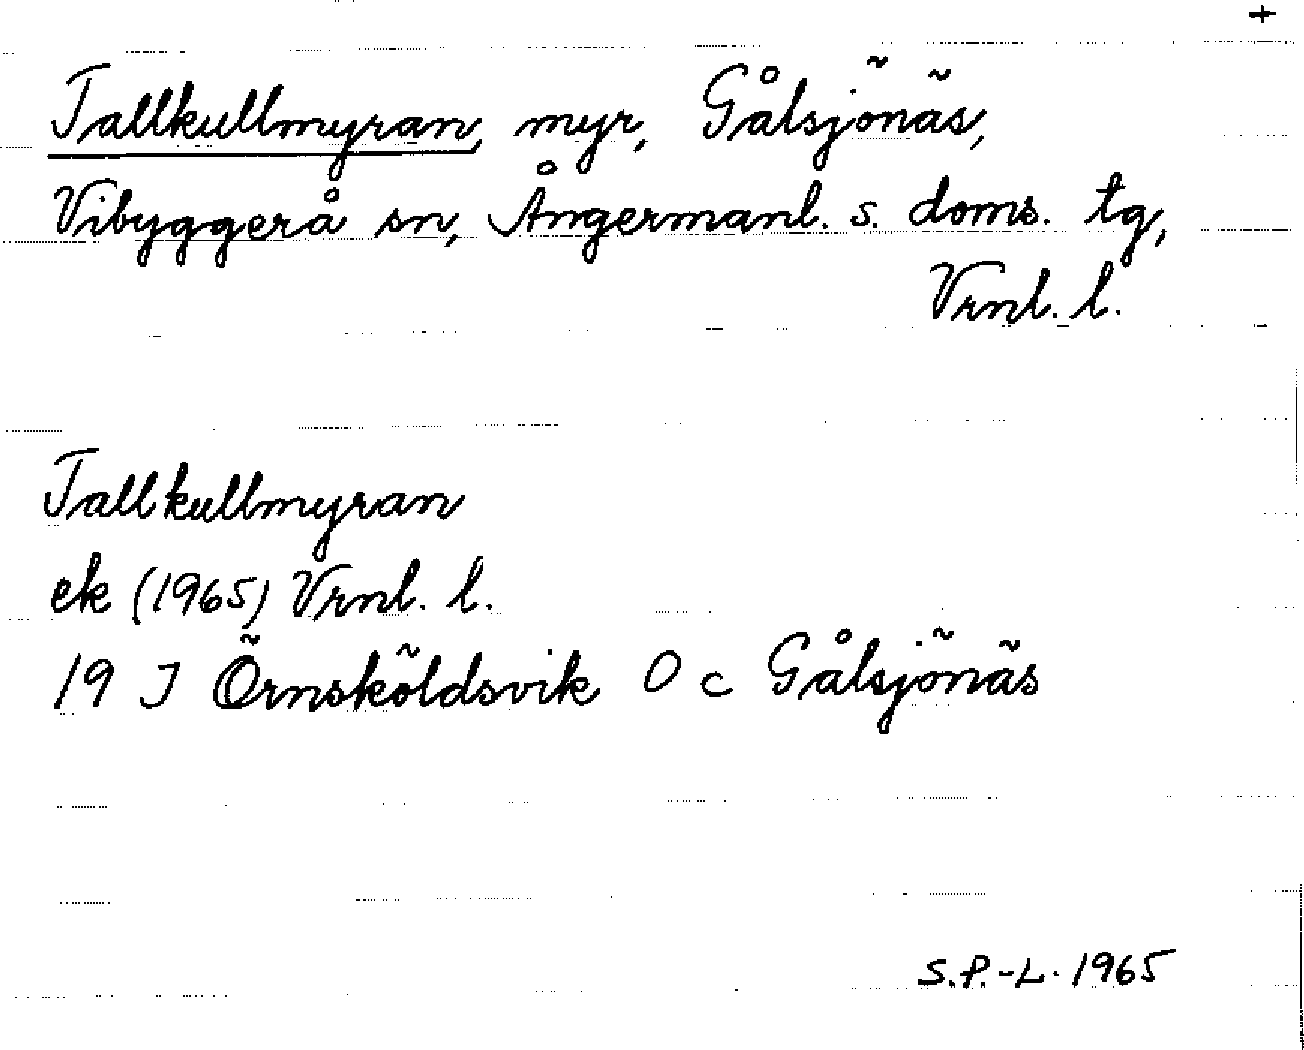 +
Tallkullmyran, myr, Gålsjönäs,
Vibyggerå sn, Ångermanl. s. doms. tg,
Vrnl. l.
Tallkullmyran
ek (1965) Vrnl. l.
19 J Örnsköldsvik O c Gålsjönäs
S.P.-L. 1965